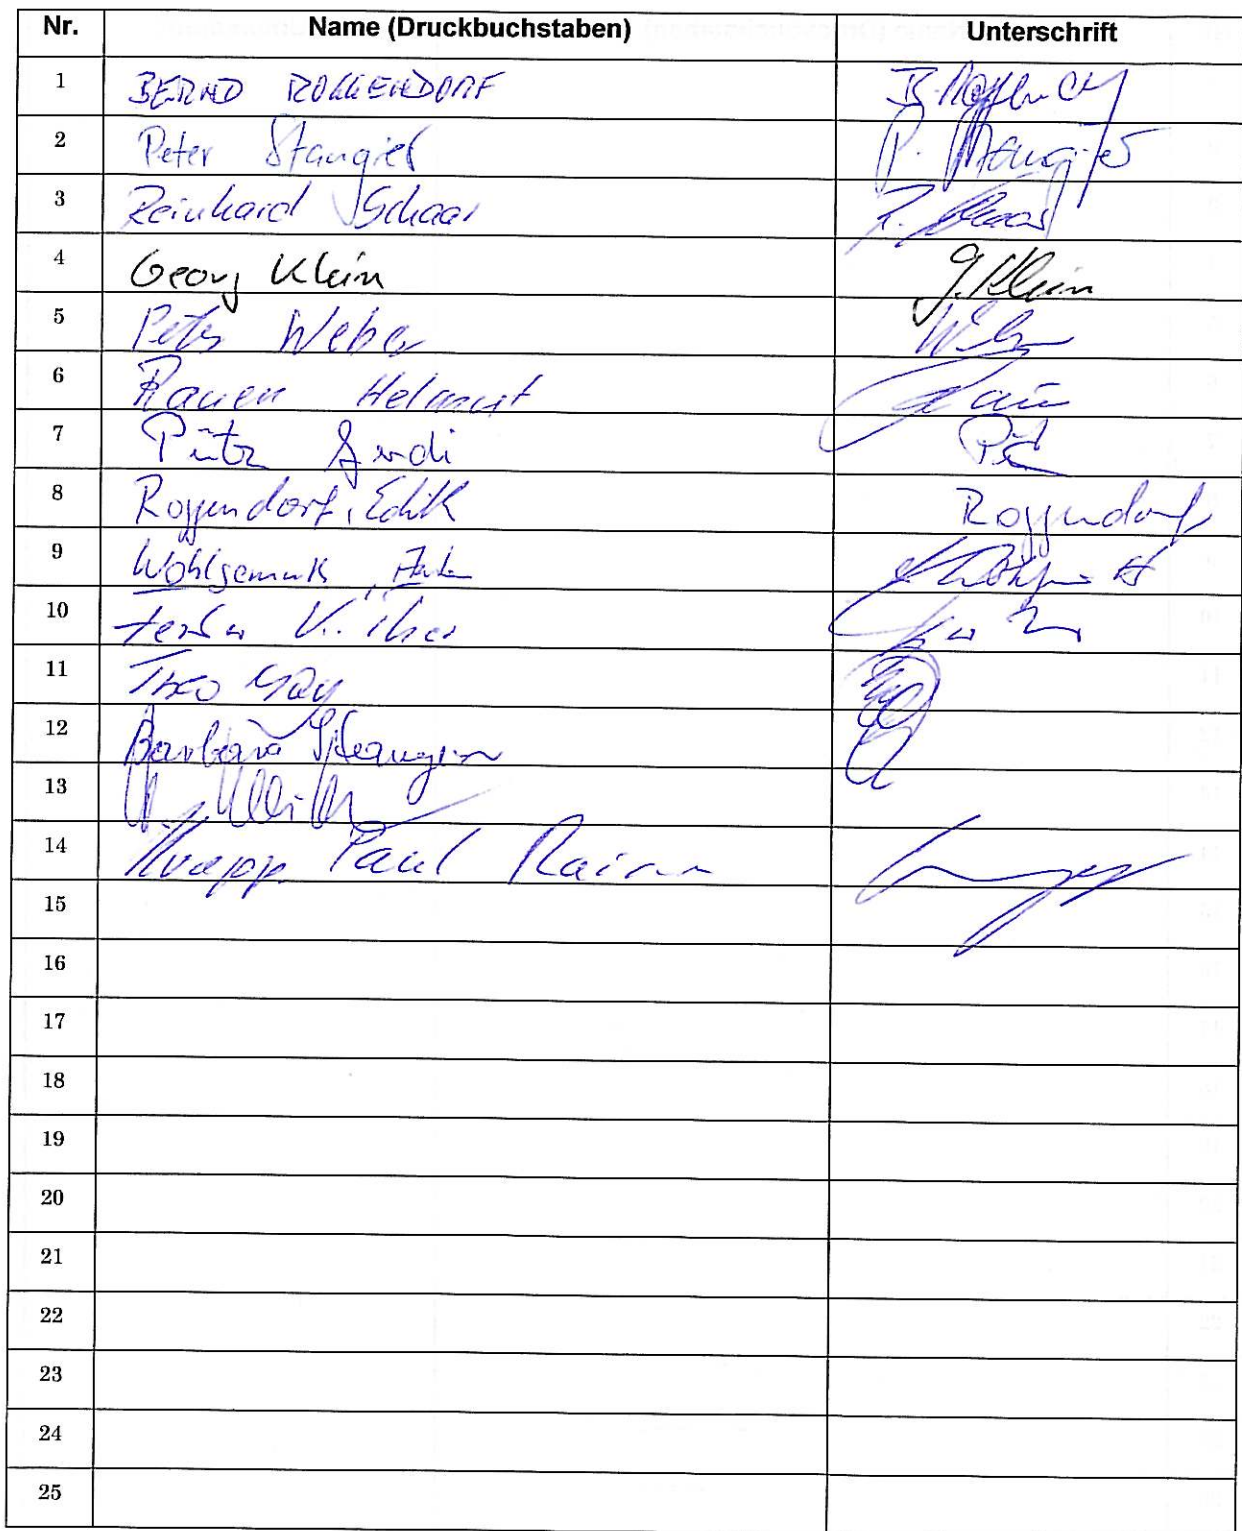 Nr. Name (Druckbuchstaben) Unterschrift
1 BERND ROGGENDORF
2 Peter Stangier P. Stangier
3 Reinhard Schaar R. Schaar
4 Georg Klein G. Klein
5 Peter Weber
6 Rauen Helmut
7 Pütz
8 Roggendorf, Edith Roggendorf
9 Wohlgemuth
10
11 Theo May
12 Barbara Stangier
13
14 Knapp Paul Rainer
15
16
17
18
19
20
21
22
23
24
25